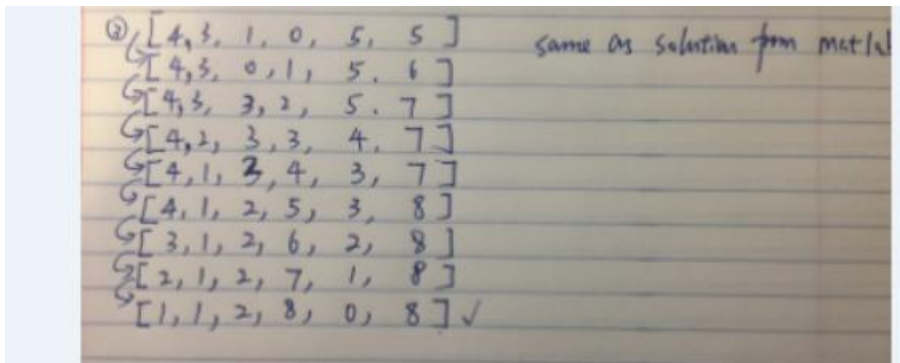 ② [4, 3, 1, 0, 5, 5] same as solution from matlab
[4, 3, 0, 1, 5, 6]
[4, 3, 3, 2, 5, 7]
[4, 2, 3, 3, 4, 7]
[4, 1, 3, 4, 3, 7]
[4, 1, 2, 5, 3, 8]
[3, 1, 2, 6, 2, 8]
[2, 1, 2, 7, 1, 8]
[1, 1, 2, 8, 0, 8] ✓